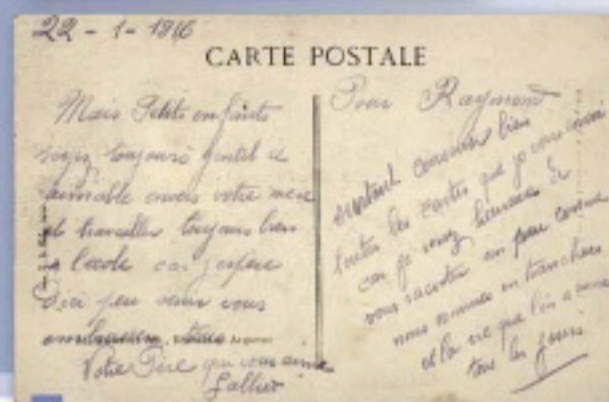 22-1-1916
CARTE POSTALE
Mais Petits enfants
soyez toujours gentil et
aimable envers votre mere
et travailler toujours bien
a l'ecole car j'espère
d'ici peu venir vous
embrasser tous
Votre Père qui vous aime
Pour Raymond
surtout conserver bien
toutes les cartes que je vous envoi
car je serez heureux de
vous raconter un peu comme
nous sommes en tranchées
et la vie que l'on a mene
tous les jours